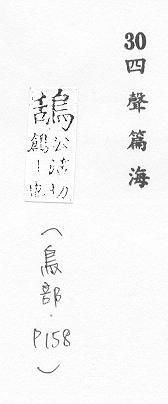 30四聲篇海
鴰公活切
鶬丨也
（鳥部．P158）